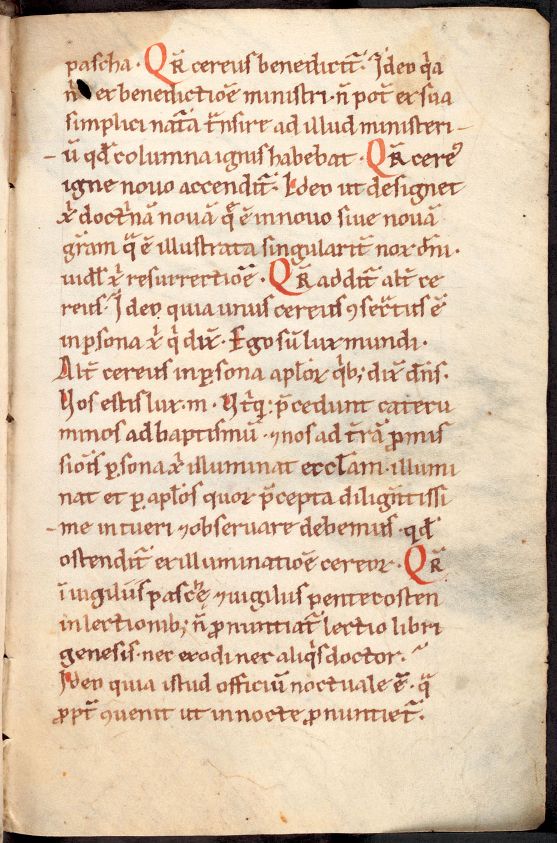 pascha · Qr̄ cereus benedicit᷑ · Ideo q̇a
n̄ ex benedictiōe ministri · n̄ pot̄ ex sua
simplici nat̄a t̄nsire ad illud ministeri-
ū qđ columna ignis habebat · Qr̄ cereꝰ
igne nouo accendit᷑ · Ideo ut designet
xp̄i doct̄nā nouā q̄ ē in nouo siue nouā
gr̄am q̄ ē illustrata singularit̄ nox dn̄i ·
xp̄i resurrectiōe · Qr̄ addit᷑ alt̄ ce
reus · Ideo quia unus cereus ꝯsec̄tus ē
in ꝑsona xp̄i q̇ dix̄ · Ego sū lux mundi ·
Alt̄ cereus in ꝑsona apl̄oꝝ q̇b; dix̄ dn̄s ·
Uos estis lux · m · Ut̄q; p̄cedunt catecu
minos ad baptismū · ⁊ nos ad t̄rā ꝓmis
siōis ꝑsona xp̄i illuminat eccl̄am · illumi
nat et ꝑ apl̄os quoꝝ p̄cepta dilign̄tissi
me intueri ⁊ obseruare debemus · qđ
ostendit᷑ ex illuminatiōe cereoꝝ · Qr̄
ī uigiliis pasce ⁊ uigiliis pentecosten
in lectionib; n̄ ꝓnuntiat᷑ lectio libri
genesis · nec exodi nec aliq̇s doctor ·
Ideo quia istud officiū noctuale ē · q̄
ꝓpt̄ ꝯuenit ut in nocte ꝓnuntiet᷑ ·